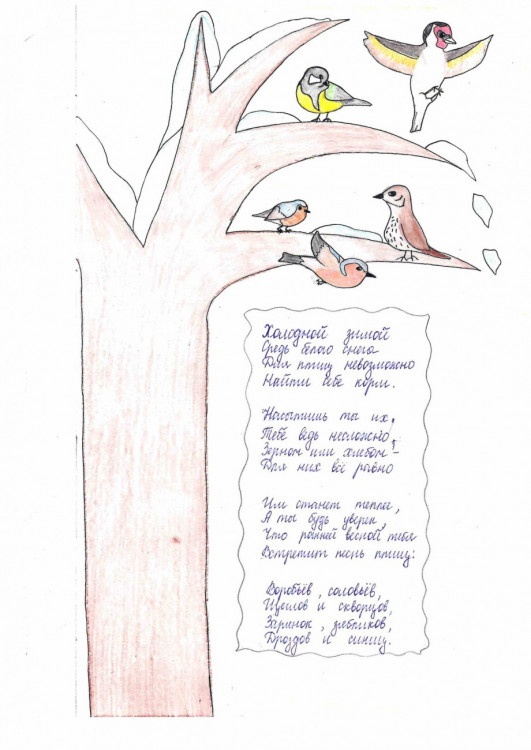 Холодной зимой
Средь белого снега
Для птиц невозможно
Найти себе корм.
Накормишь ты их,
Тебе ведь несложно,
Зерном или хлебом –
Для них всё равно
Им станет теплее,
А ты будь уверен,
Что ранней весной тебя
Встретит песнь птиц:
Воробьёв, соловьёв,
Щеглов и скворцов,
Зарянок, зябликов,
Дроздов и синиц.